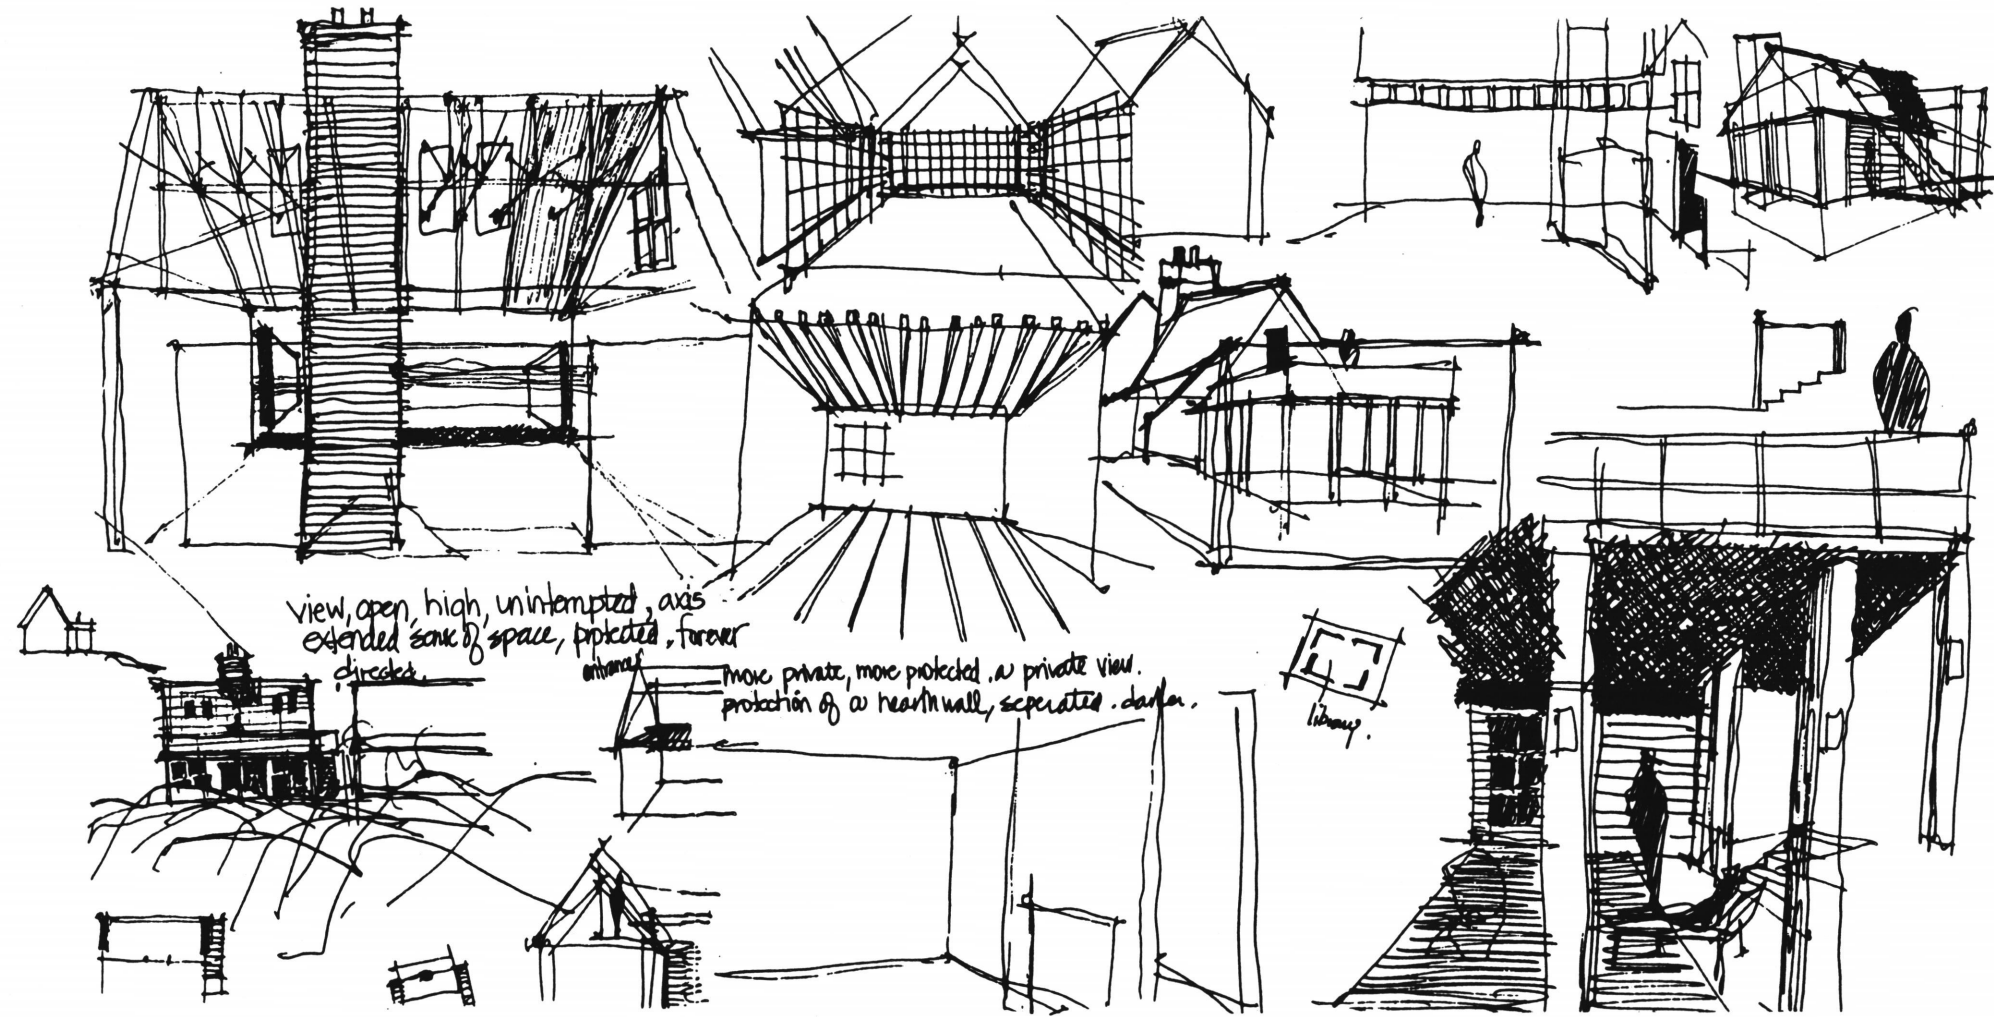 view, open, high, unintempted, axis
extended sense of space, protected, forever
directed.
entrance
more private, more protected. a private view.
protection of a hearth wall, seperated. darker.
library.